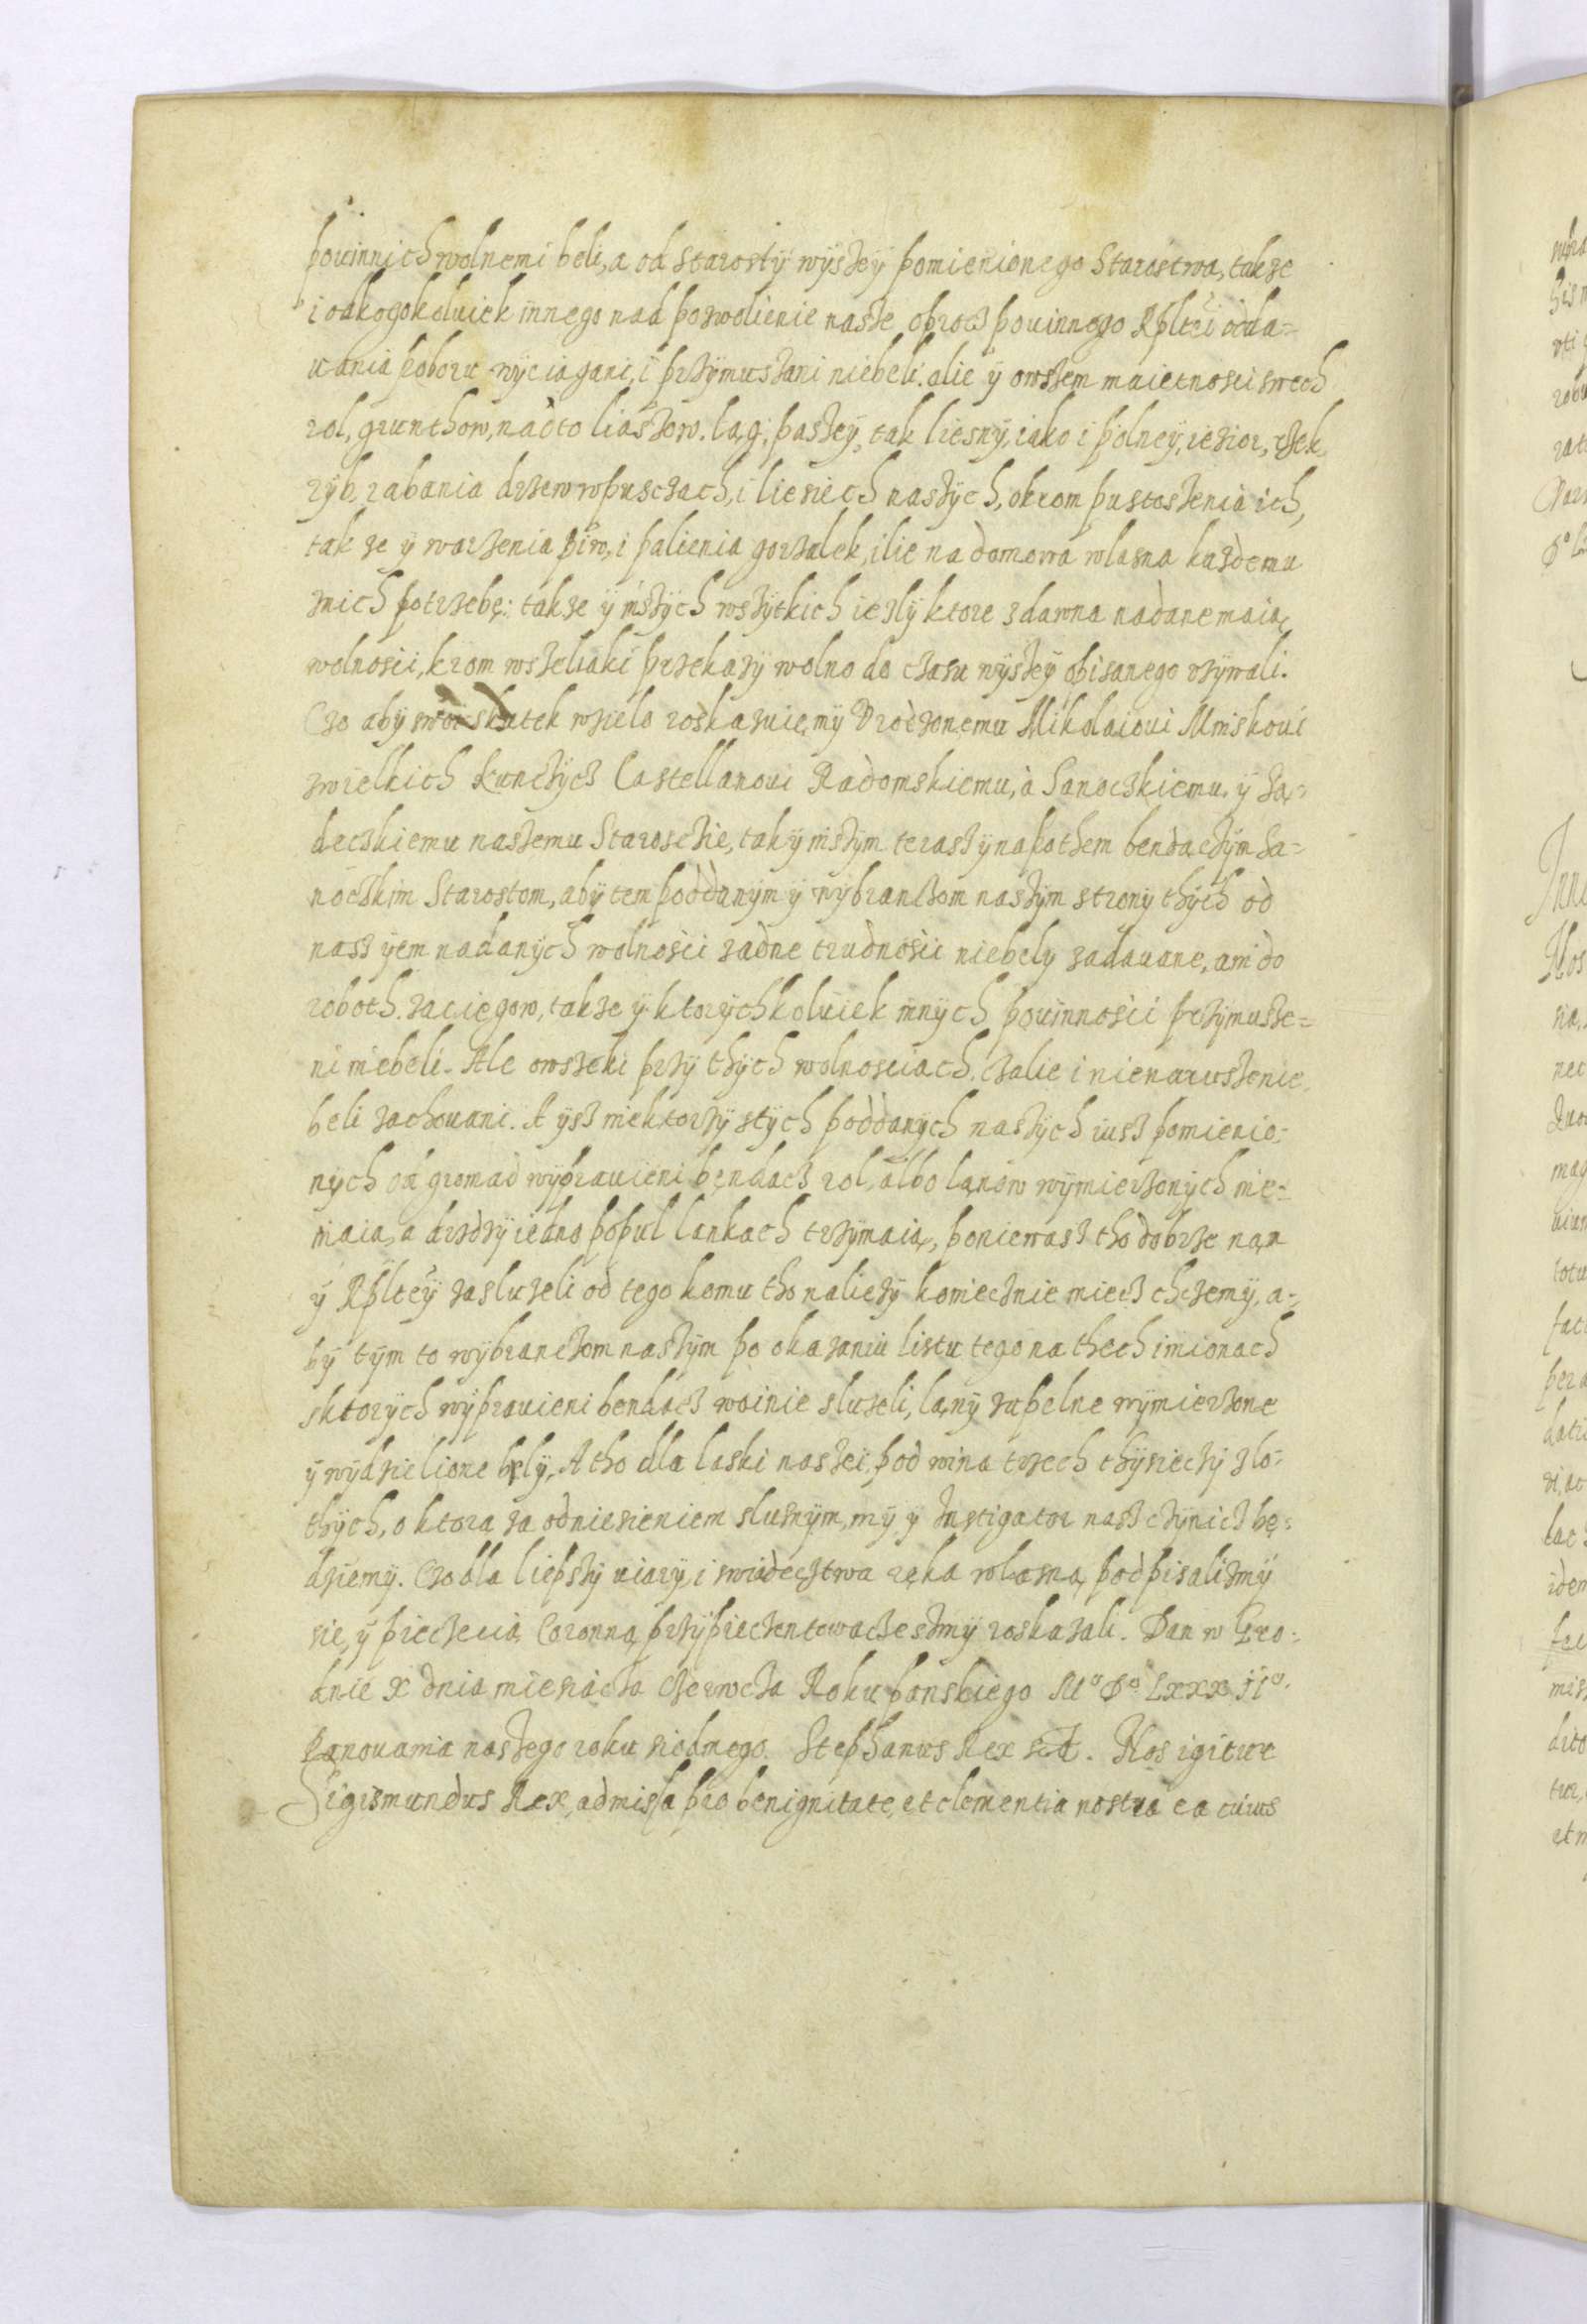 powinnich wolnemi beli, a od Starosty wysszey pomienionego Starostwa, takze
i od kogokolwiek innego nad pozwolienie nasze oprocz powinnego Rpltei odda=
wania poboru wyciagani, i przymuszani niebeli. alie y owszem maietnosci swech
rol, grunthow, nadto liaszow. lag, paszey, tak liesny, iako i polney, iezior, rzek,
ryb, rabania drzew w puszczach, i liesiech naszych, okrom pustoszenia ich,
tak ze y warzenia piw, i palienia gorzalek, ilie na domowa wlasna kazdemu
znich potrzebę: takze y inszych wszytkich iesly ktore zdawna nadane maia
wolnosci, krom wszeliaki przekazy wolno do czasu wyszey opisanego vzywali.
Czo aby swoi skutek wzielo roskazuiemy Vrodzonemu Mikolaioui Mniskoui
zwielkich Kunczycz Castellanoui Radomskiemu, a Sanoczkiemu, y Są=
deczkiemu naszemu Staroscie, tak y inszym terasz y napothem bendaczym Sa=
noczkim Starostom, aby tem poddanym y wybranczom naszym strony thych od
nasz yem nadanych wolnosci zadne trudnosci niebely zadauane, ani do
roboth. zaciegow, takze y ktorychkoluiek innych powinnosci przymusze=
ni niebeli. Ale owszeki przy thych wolnosciach. czalie i nienaruszenie
beli zachouani. A ysz niektorzy stych poddanych naszych iusz pomienio=
nych od gromad wyprauieni bendacz rol, albo lanow wymierzonych nie=
maia, a drudzy iedno po pul lankach trzymaia, poniewasz tho dobrze nam
y Rpltey zasluzeli od tego komu tho naliezy koniecznie miecz chczemy, a=
by tym to wybranczom naszym po okazaniu listu tego na thech imionach
sktorych wyprauieni bendacz woinie sluzeli, lany zupelne wymierzone
y wydzielione bely, A tho dla laski naszei, pod wina trzech thysieczy zlo=
thych, o ktora za odniesieniem slusznym, my y Instigator nasz czynicz bę=
dziemy. Czo dla liepszy wiary, i swiadecztwa ręka wlasna podpisalismy
sie, y pieczecia Coronna przypieczentowacz esmy roskazali. Dan w Gro=
dnie X dnia miesiacza Czerwcza Roku panskiego Mº Dº Lxxx ijº.
Panouania naszego roku siodmego. Stephanus Rex sst. Nos igitur
Sigismundus Rex, admissa pro benignitate, et clementia nostra ea cuius